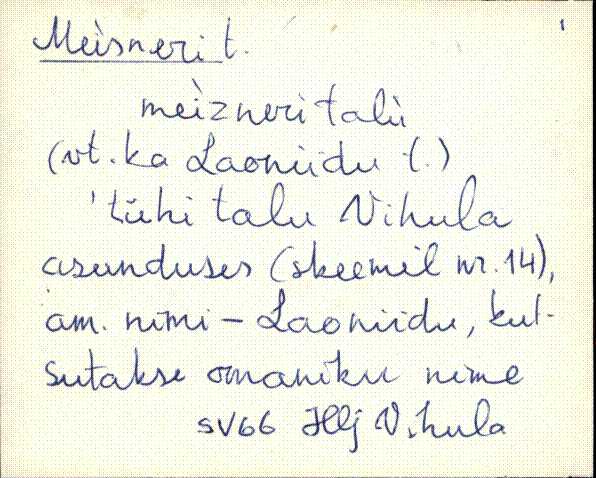 1
Meìsneri t.
meìzneri talù
(vt. ka Laoniidu t.)
'tühi talu Vihula
asunduses (skeemil nr. 14),
am. nimi – Laoniidu, kut-
sutakse omaniku nime
SV66 Hlj Vihula